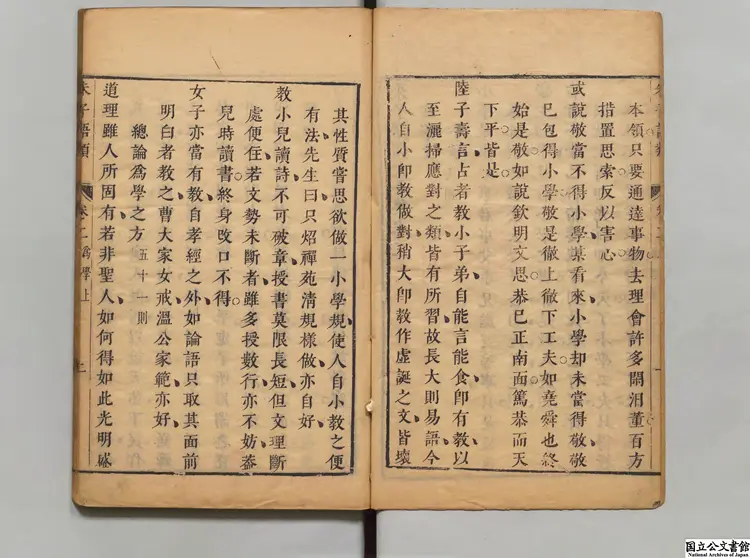 本領只要通達事物去理會許多閑汨董百方
措置思索反以害心
或說敬當不得小學某看來小學却未當得敬敬
巳包得小學敬是徹上徹下工夫如堯舜也終
始是敬如說欽明文思恭巳正南面篤恭而天
下平皆是
陸子壽言古者教小子弟自能言能食卽有教以
至灑掃應對之類皆有所習故長大則易語今
人自小卽教做對稍大卽教作虛誕之文皆壞
其性質嘗思欲做一小學規使人自小教之便
有法先生曰只炤禪苑淸規樣做亦自好
教小兒讀詩不可破章授書莫限長短但文理斷
處便住若文勢未斷者雖多授數行亦不妨葢
兒時讀書終身改口不得
女子亦當有教自孝經之外如論語只取其面前
明白者教之曹大家女戒溫公家範亦好
總論爲學之方 五十一則
道理雖人所固有若非聖人如何得如此光明盛
朱子語類 卷二爲學上
国立公文書館
National Archives of Japan